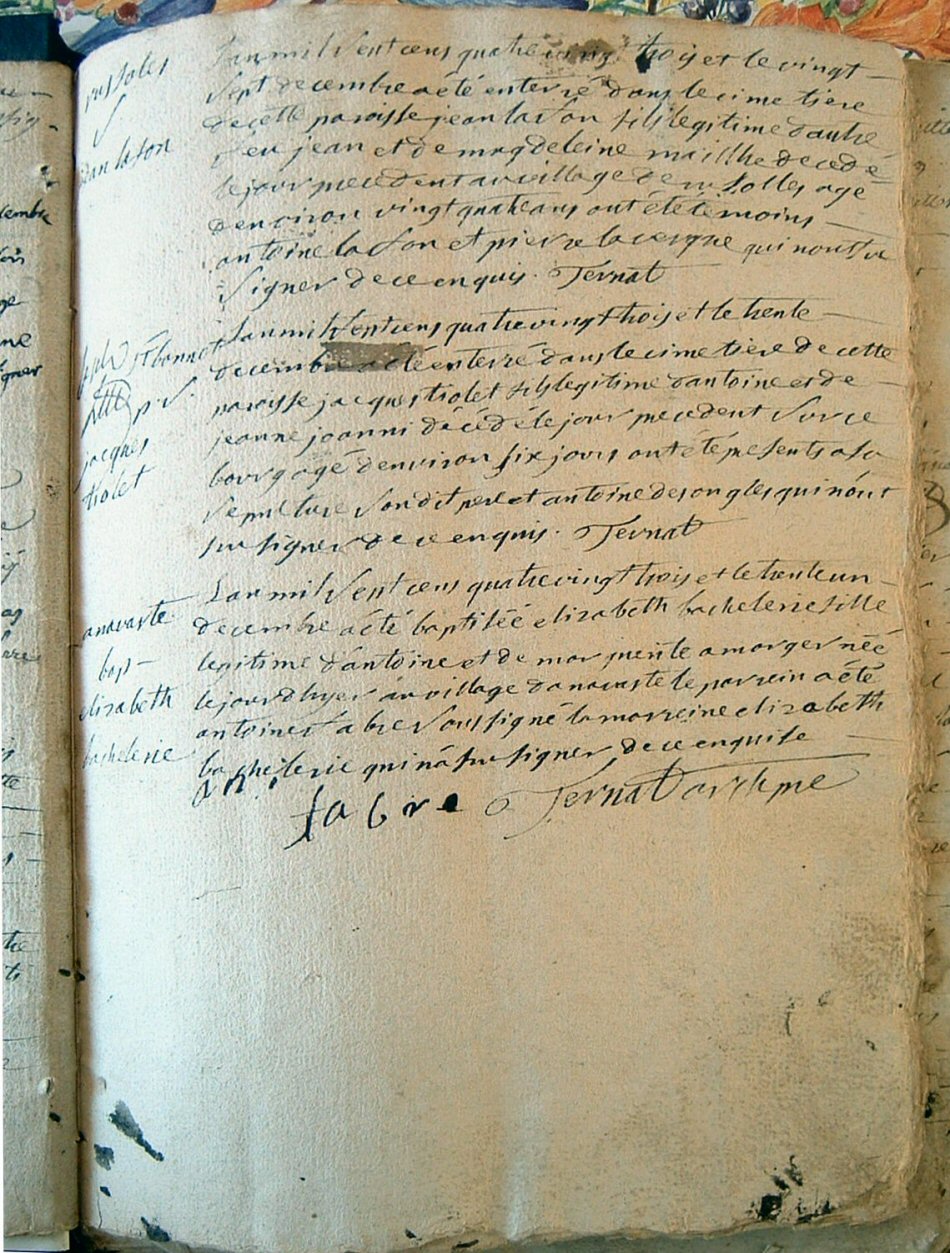 russoles
S
jean lason
L'an mil sept cens quatre vingt trois et le vingt
sept decembre a été enterré dans le cimetiere
de cette paroisse jean lason fils legitime d'autre
feu jean et de magdeleine mailhe decedé
le jour precedent au village de russolles agé
d'environ vingt quatre ans ont été temoins
antoine lason et pierre lavergne qui n'ont su
signer de ce enquis. Ternat
st bonnet
p. S.
jacques
violet
L'an mil sept cens quatre vingt trois et le trente
decembre a été enterré dans le cimetiere de cette
paroisse jacques violet fils legitime d'antoine et de
jeanne joanni décédé le jour precedent sur ce
bourg agé d'environ six jours ont été presents a sa
sepulture son dit pere et antoine desongles qui n'ont
su signer de ce enquis. Ternat
anavaste
bap
elizabeth
bachelerie
L'an mil sept cens quatre vingt trois et le trente un
decembre a été baptisée elizabeth bachelerie fille
legitime d'antoine et de marguerite amarger née
le jour d'hyer au village d'anavaste le parrein a été
antoine fabre soussigné la marreine elizabeth
bachelerie qui n'a su signer de ce enquise
fabre Ternat